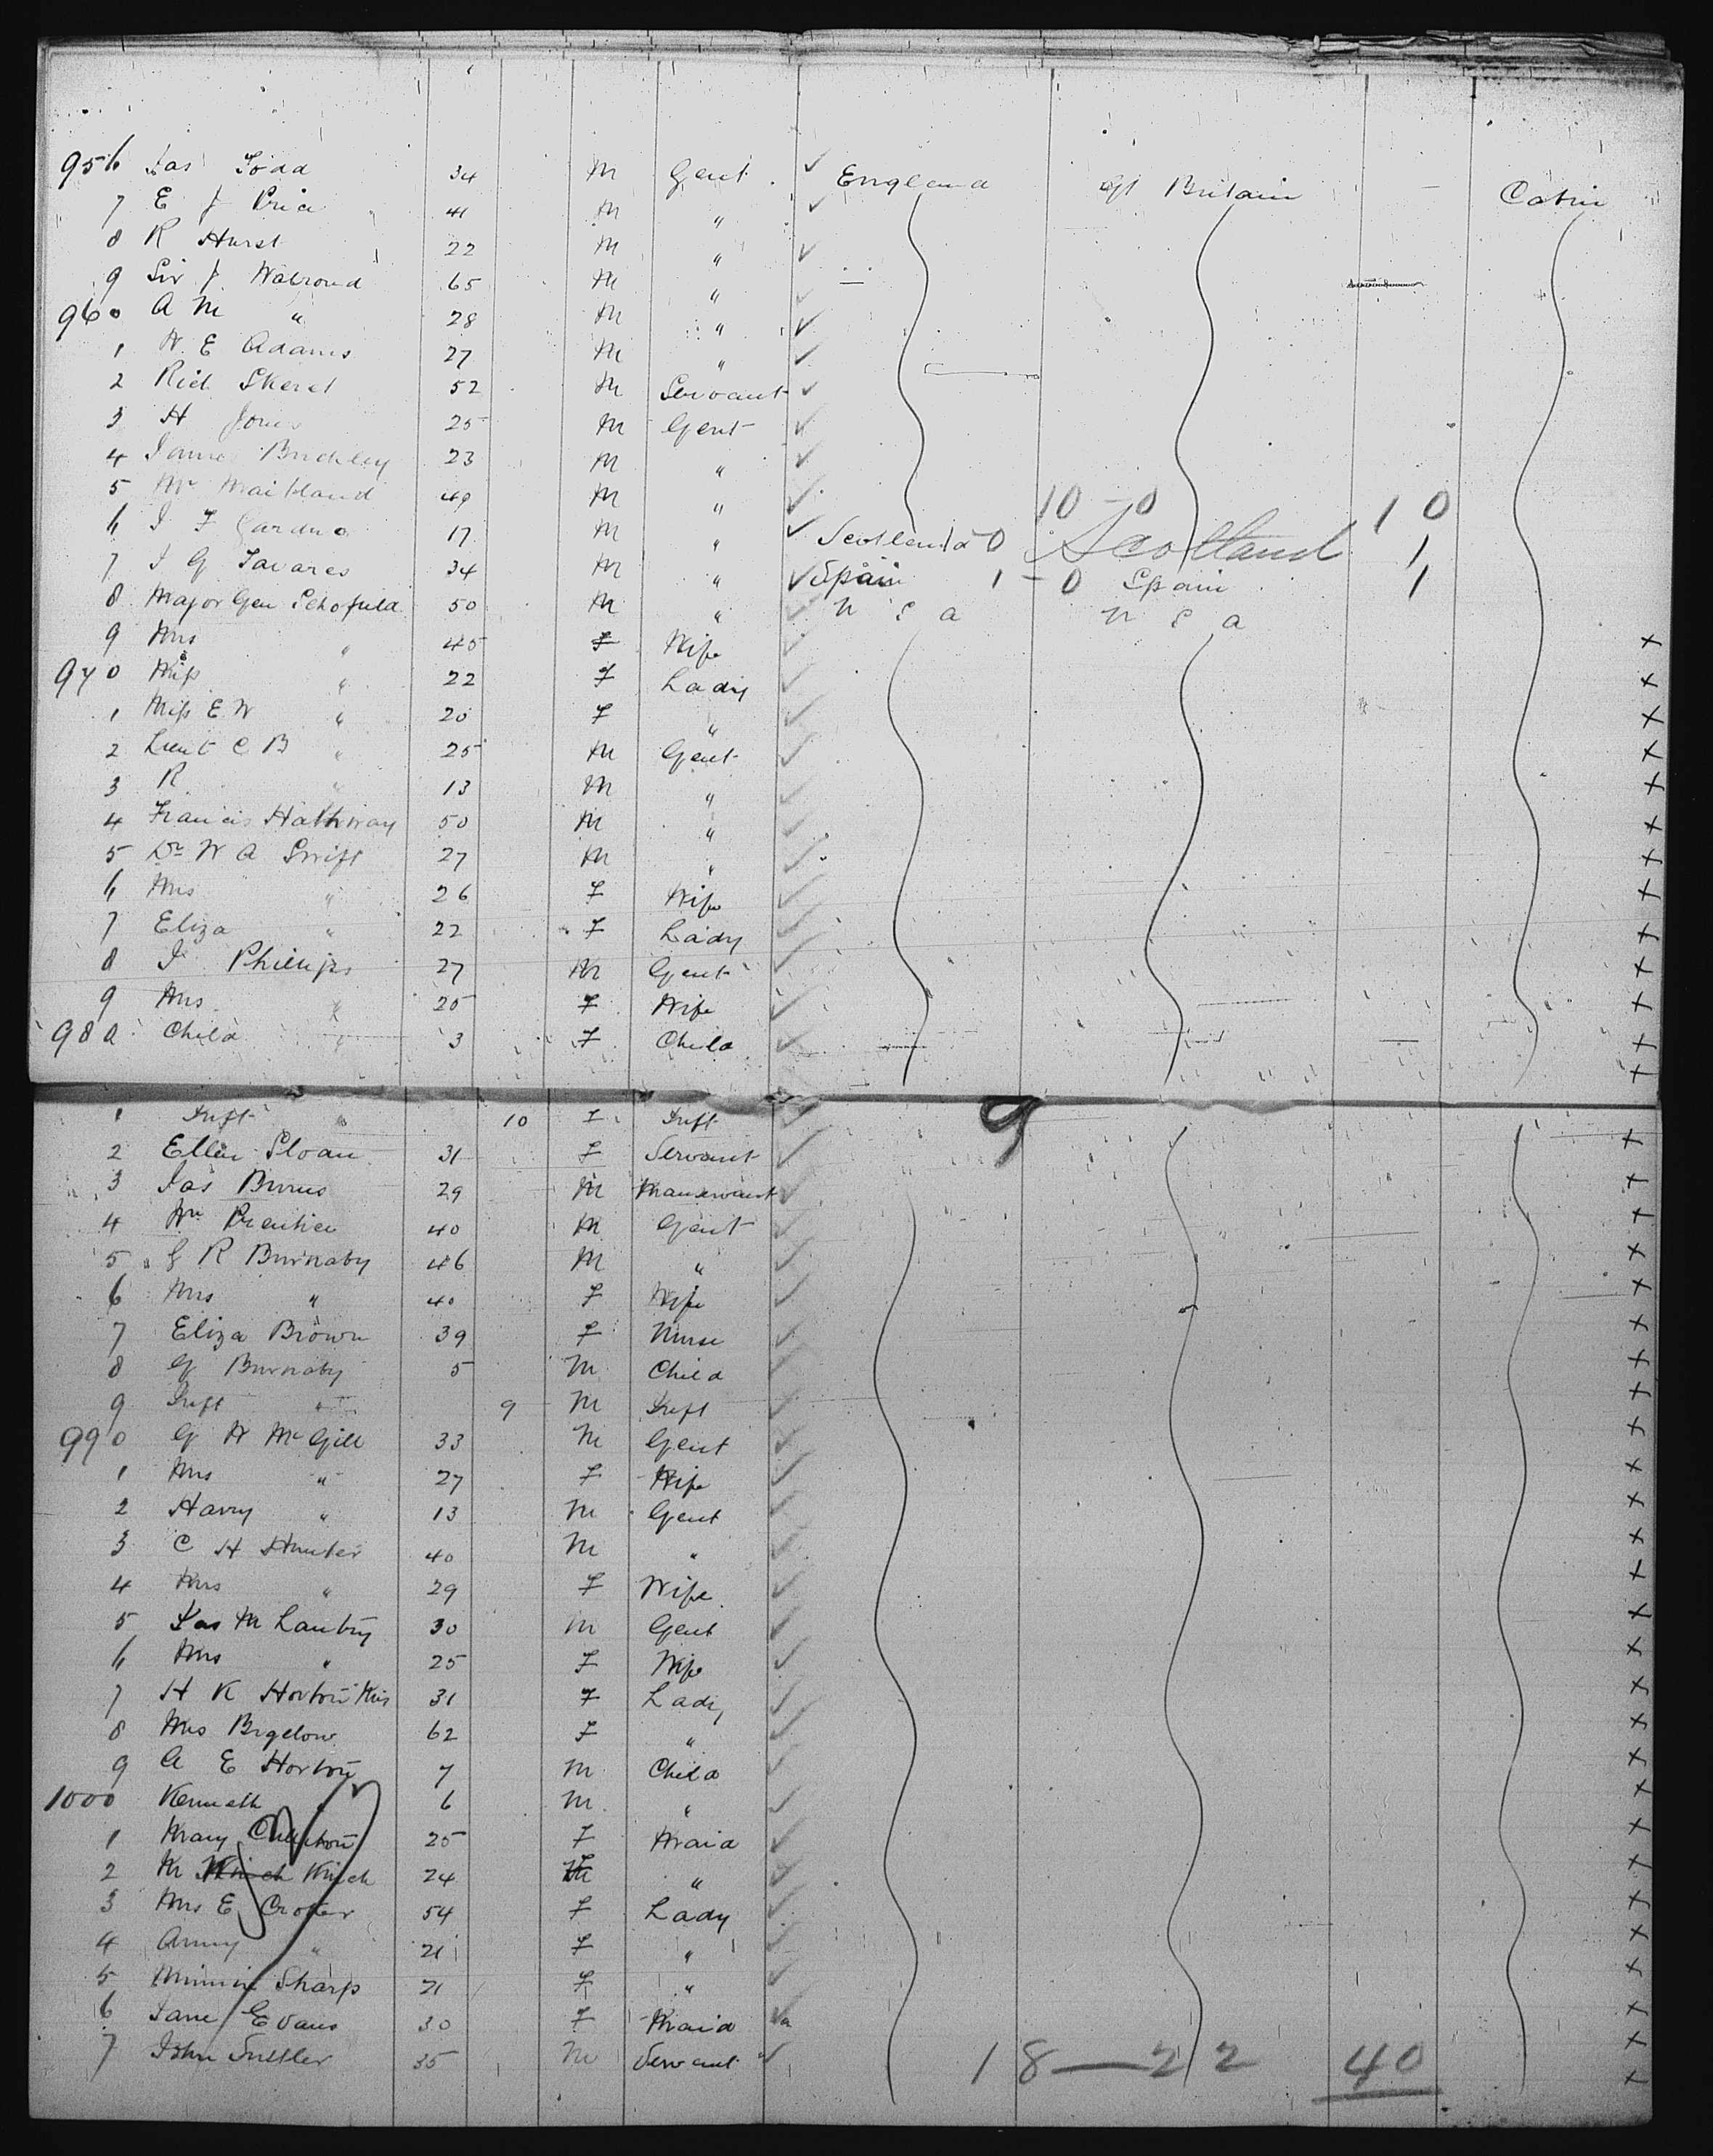 956 Jas Todd 34 M Gent England Gt Britain Cabin
7 E J Price 41 M "
8 R Hurst 22 M "
9 Sir J Walrond 65 M "
960 A M " 28 M "
1 W. E Adams 27 M "
2 Rich Skeret 52 M Servant
3 H Jones 25 M Gent
4 James Brickley 23 M "
5 Mr Maitland 49 M "
10 - 0 10
6 J F 17 M " Scotland 1 - 0 Scotland 1
7 J G Tavares 34 M " Spain 1 - 0 Spain 1
8 Major Gen Schofield 50 M " U S a U S a
9 Mrs " 45 F Wife X
970 Miss " 22 F Lady X
1 Miss E. W " 20 F " X
2 Lieut C B " 25 M Gent X
3 R " 13 M " X
4 Francis Hathway 50 M " X
5 Dr W A Swift 27 M " X
6 Mrs " 26 F Wife X
7 Eliza " 22 F Lady X
8 J Phillips 27 M Gent X
9 Mrs " 25 F Wife X
980 Child " 3 F Child X
1 Inft " 10 F Inft 9
2 Ellen Sloan 31 F Servant X
3 Jas Burns 29 M Manservant X
4 Wm Prentice 40 M Gent X
5 G R Burnaby 46 M " X
6 Mrs " 40 F Wife X
7 Eliza Brown 39 F Nurse X
8 G Burnaby 5 M Child X
9 Inft " 9 M Inft X
990 G H McGill 33 M Gent X
1 Mrs " 27 F Wife X
2 Harry " 13 M Gent X
3 C H Hunter 40 M " X
4 Mrs " 29 F Wife X
5 Jas M 30 M Gent X
6 Mrs " 25 F Wife X
7 H K Horton 31 F Lady X
8 Mrs Bigelow 62 F " X
9 A E Horton 7 M Child X
1000 Kenneth " 6 M " X
1 Mary 25 F Maid X
2 M 24 F " X
3 Mrs E Crofter 54 F Lady X
4 Anny " 21 F " X
5 Minnie Sharp 21 F " X
6 Jane Evans 30 F Maid X
7 John 35 M Servant X
18 — 22 40